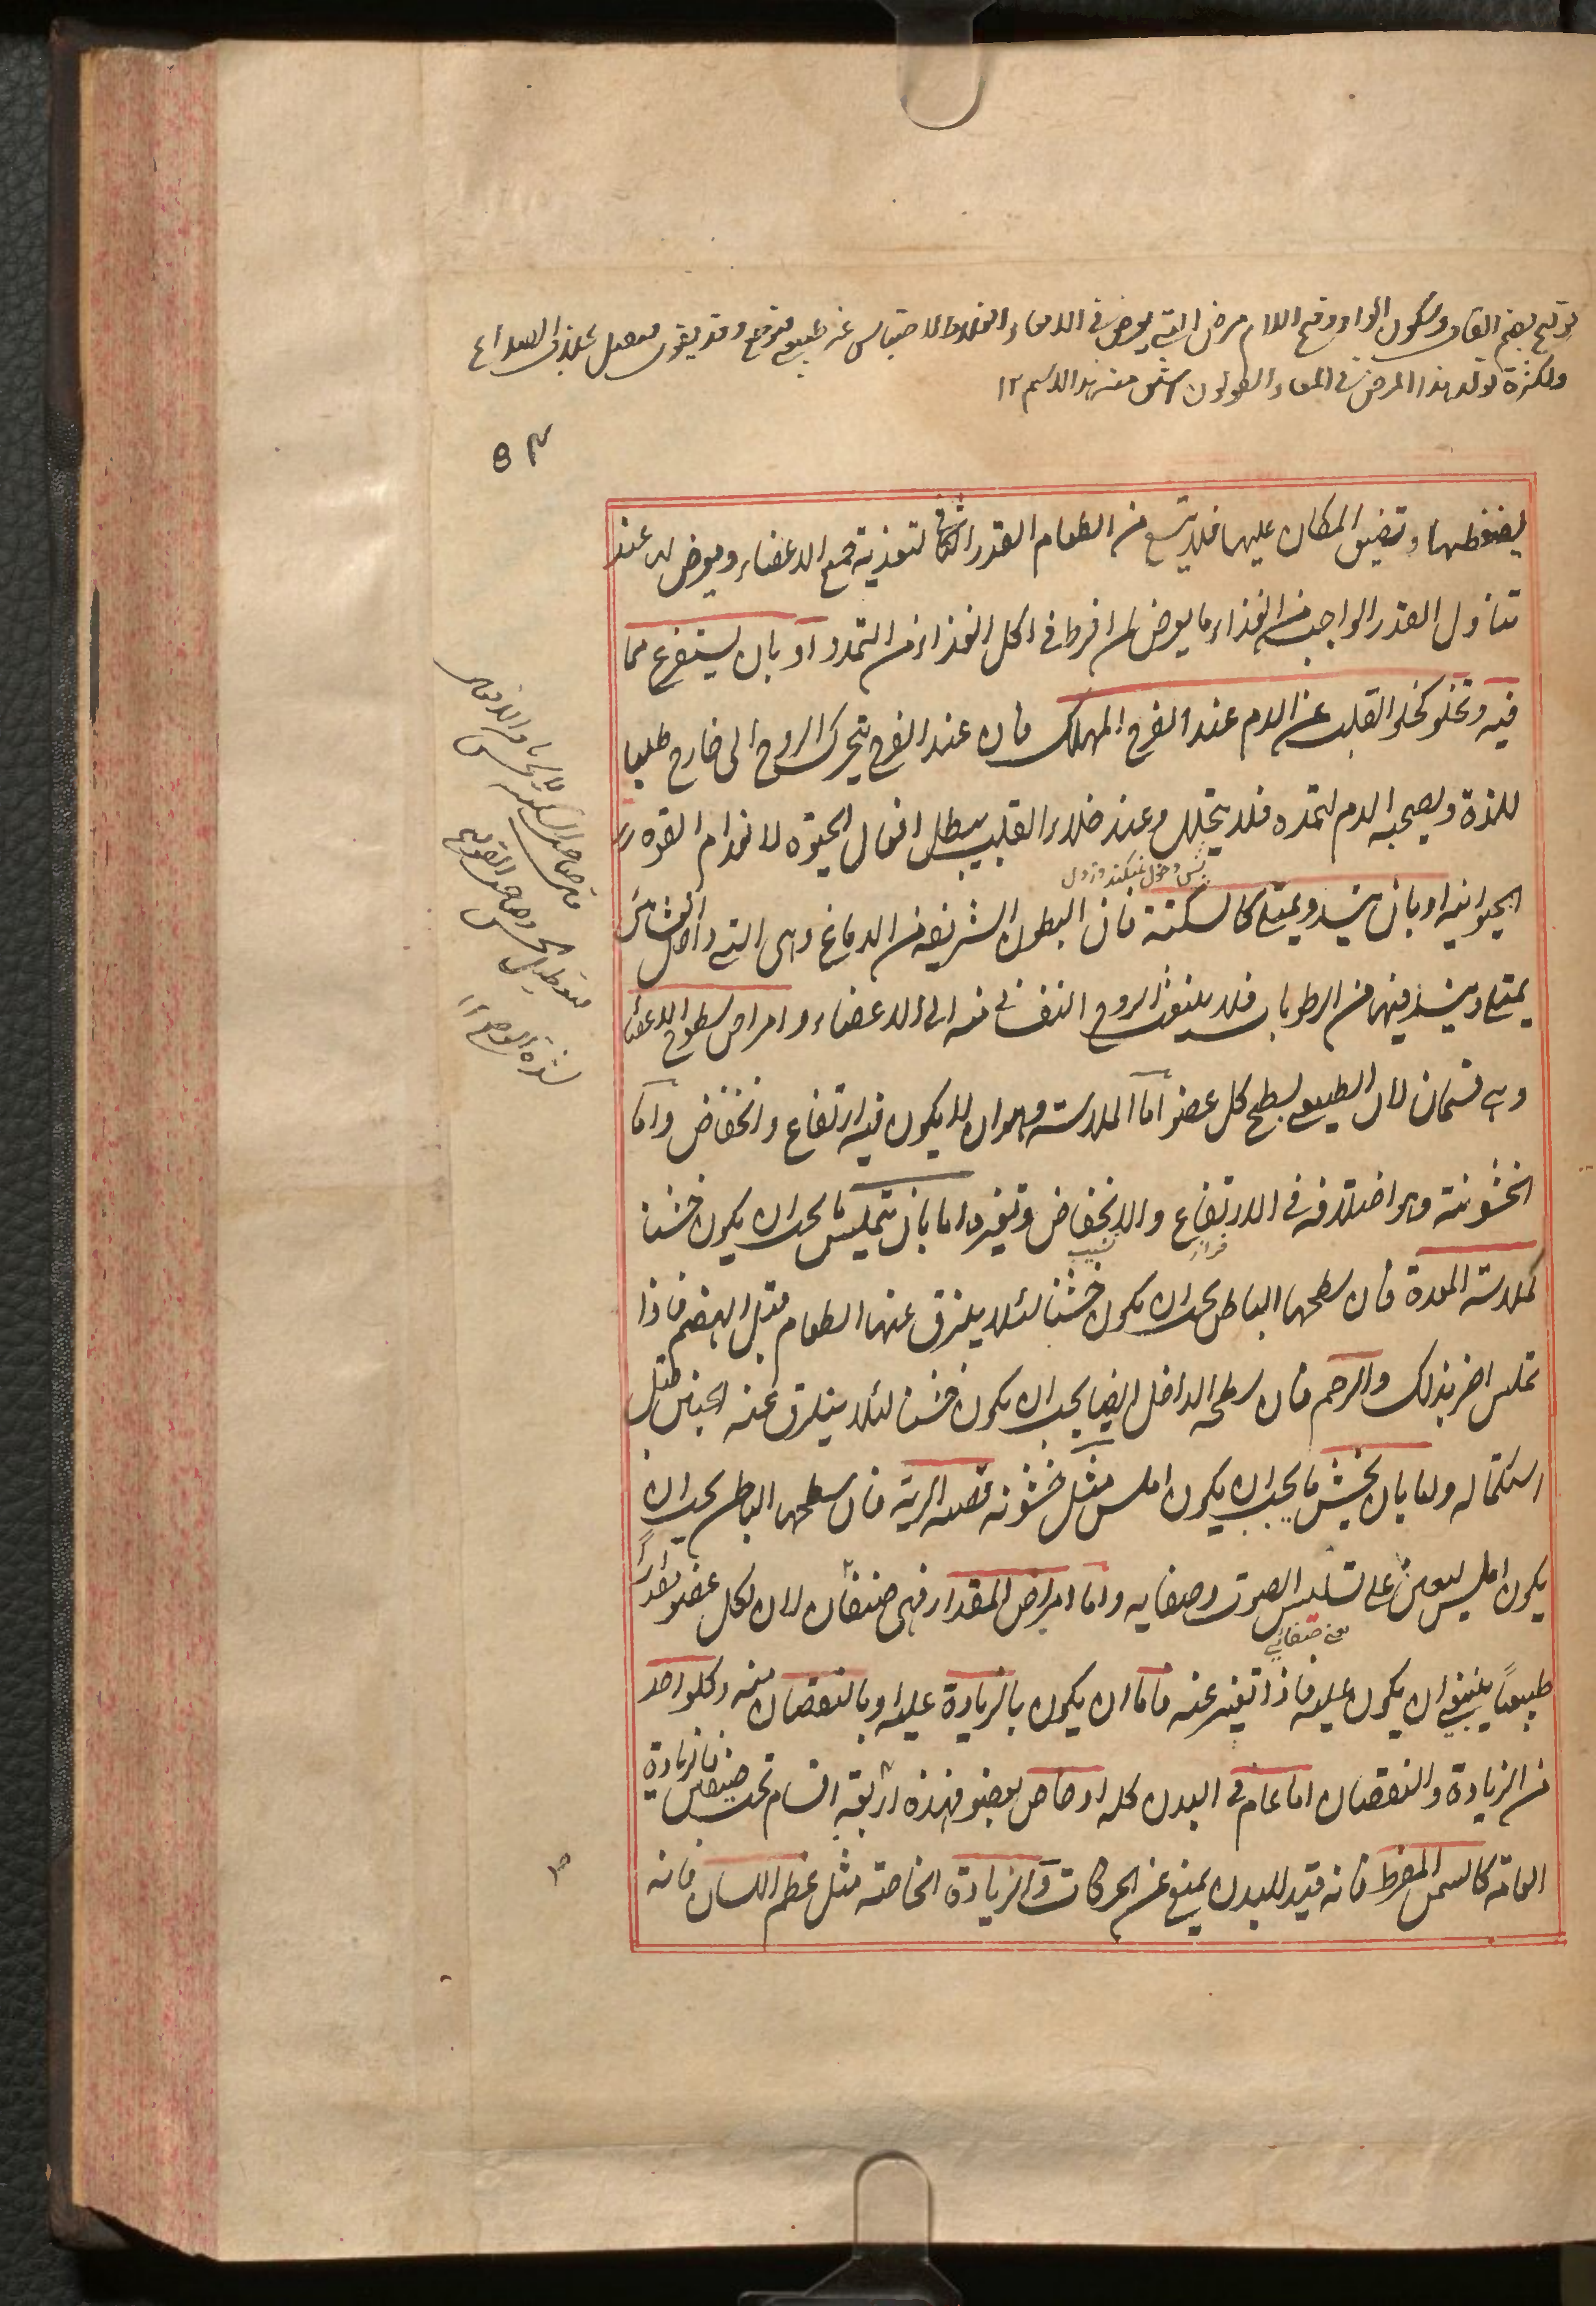 قولنج بضم القاف وسكون الواو وفتح اللام مرض آلتي يعرض في الامعاء الغلاظ لاحتباس غير طبيعي فتوجع
ولكثرة تولد هذا المرض في المعاء القولون اشتق منه هذا الاسم ١٢
يضغطها وتضيق المكان عليها فلا يتسع من الطعام القدر الكافي لتغذية جميع الاعضاء ويعرض له عند
تناول القدر الواجب من الغذاء ما يعرض لمن افرط في اكل الغذاء من التمدد او بان يستفرغ مما
فيه وتخلو كخلو القلب عن الدم عند الفرح المهلك فان عند الفرح يتحرك الروح الى خارج طلبا
للذة ويصحبه الدم لتمده فلا يتحلل وعند خلاء القلب يبطل افعال الحيوة لانعدام القوة
الحيوانية او بان ينسد ويمتلئ كالسكتة فان البطون الشريفة من الدماغ وهي التي داخل الغشائين
يمتلئ وينسد فيها من الرطوبات فلا ينفذ الروح النفساني منه الى الاعضاء وامراض سطوح الاعضاء
وهي قسمان لان الطبيعي لسطح كل عضو اما الملاسة وهو ان لا يكون فيه ارتفاع وانخفاض واما
الخشونة وهو اختلافه في الارتفاع والانخفاض وتغيره اما بان يتملس ما يجب ان يكون خشنا
فراز نشيب
كملاسة المعدة فان سطحها الباطن يجب ان يكون خشنا لئلا يلزق عنها الطعام قبل الهضم فاذا
تملس اضر بذلك والرحم فان سطحه الداخل ايضا يجب ان يكون خشنا لئلا ينزلق عنه الجنين قبل
استكماله واما بان يخشن ما يجب ان يكون املس مثل خشونة قصبة الرية فان سطحها الباطن يجب ان
يكون املس ليعين على تسليس الصوت وصفايه واما امراض المقدار فهي صنفان لان لكل عضو مقدارا
يعني صفائي
طبيعيا ينبغي ان يكون عليه فاذا تغير عنه فاما ان يكون بالزيادة عليه او بالنقصان منه وكل واحد
من الزيادة والنقصان اما عام في البدن كله او خاص بعضو فهذه اربعة اقسام تحت صنفين فالزيادة
العامة كالسمن المفرط فانه قيد للبدن يمنع عن الحركات والزيادة الخاصة مثل عظم اللسان فانه